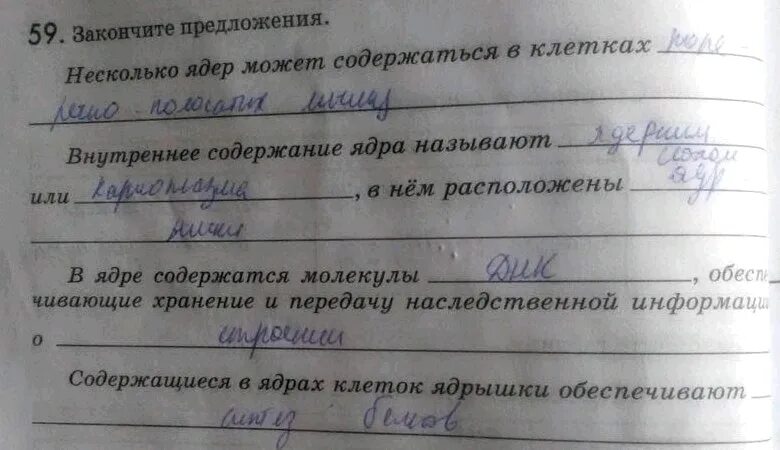 59. Закончите предложения.
Несколько ядер может содержаться в клетках попе
речно-полосатых мышц
Внутреннее содержание ядра называют ядерным
соком
или кариоплазма, в нём расположены яд
рышки
В ядре содержатся молекулы ДНК, обесп
чивающие хранение и передачу наследственной информаци
о строении
Содержащиеся в ядрах клеток ядрышки обеспечивают
синтез белков